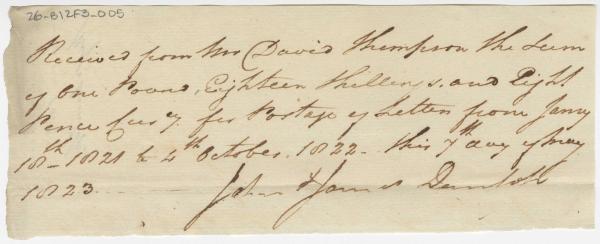 26-B12F3-005
Received from Mr David Thompson the Sum
of One Pound, Eighteen Shillings, and Eight
Pence Cur:y. for Postage of Letters from Jany
18th 1821 to 4th October. 1822. This 7th day of May
1823
John & James Dunlop